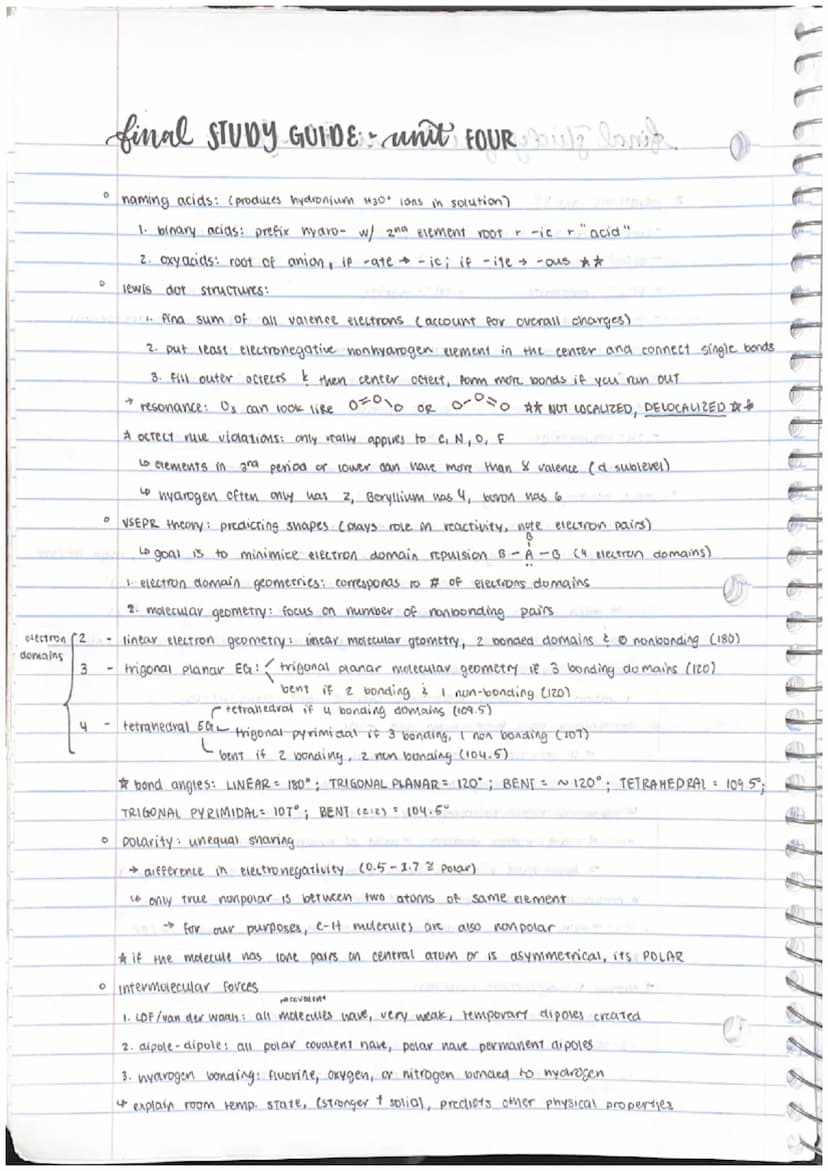 final STUDY GUIDE - unit FOUR
naming acids: (produces hydronium H3O+ ions in solution)
1. binary acids: prefix hydro- w/ 2nd element root + -ic + "acid"
2. oxyacids: root of anion, if -ate → -ic; if -ite → -ous ★★
lewis dot structures:
1. find sum of all valence electrons (account for overall charges)
2. put least electronegative nonhydrogen element in the center and connect single bonds
3. fill outer octects & then center octect, form more bonds if you run out
→ resonance: O3 can look like O=O\O OR O-O=O ★★ NOT LOCALIZED, DELOCALIZED ★★
★ octect rule violations: only really applies to C, N, O, F
↳ elements in 3rd period or lower can have more than 8 valence (d sublevel)
↳ hydrogen often only has 2, Beryllium has 4, boron has 6
VSEPR theory: predicting shapes (plays role on reactivity, note electron pairs)
B
↳ goal is to minimize electron domain repulsion B - Ä - B (4 electron domains)
1. electron domain geometries: corresponds to # of electrons domains
2. molecular geometry: focus on number of nonbonding pairs
electron domains
2 - linear electron geometry: linear molecular geometry, 2 bonded domains & 0 nonbonding (180)
3 - trigonal planar EG: trigonal planar molecular geometry if 3 bonding domains (120)
bent if 2 bonding & 1 non-bonding (120)
tetrahedral if 4 bonding domains (109.5)
4 - tetrahedral EG trigonal pyrimidal if 3 bonding, 1 non bonding (107)
bent if 2 bonding, 2 non bonding (104.5)
★ bond angles: LINEAR = 180°; TRIGONAL PLANAR = 120°; BENT = ~120°; TETRAHEDRAL = 109.5°;
TRIGONAL PYRIMIDAL = 107°; BENT (2:2) = 104.5°
polarity: unequal sharing
→ difference in electronegativity (0.5-1.7 ≥ polar)
↳ only true nonpolar is between two atoms of same element
→ for our purposes, C-H molecules are also nonpolar
★ if the molecule has lone pairs on central atom or is asymmetrical, its POLAR
intermolecular forces
covalent
1. LDF/van der waals: all molecules have, very weak, temporary dipoles created
2. dipole-dipole: all polar covalent have, polar have permanent dipoles
3. hydrogen bonding: fluorine, oxygen, or nitrogen bonded to hydrogen
↳ explain room temp. state, (stronger ↑ solid), predicts other physical properties